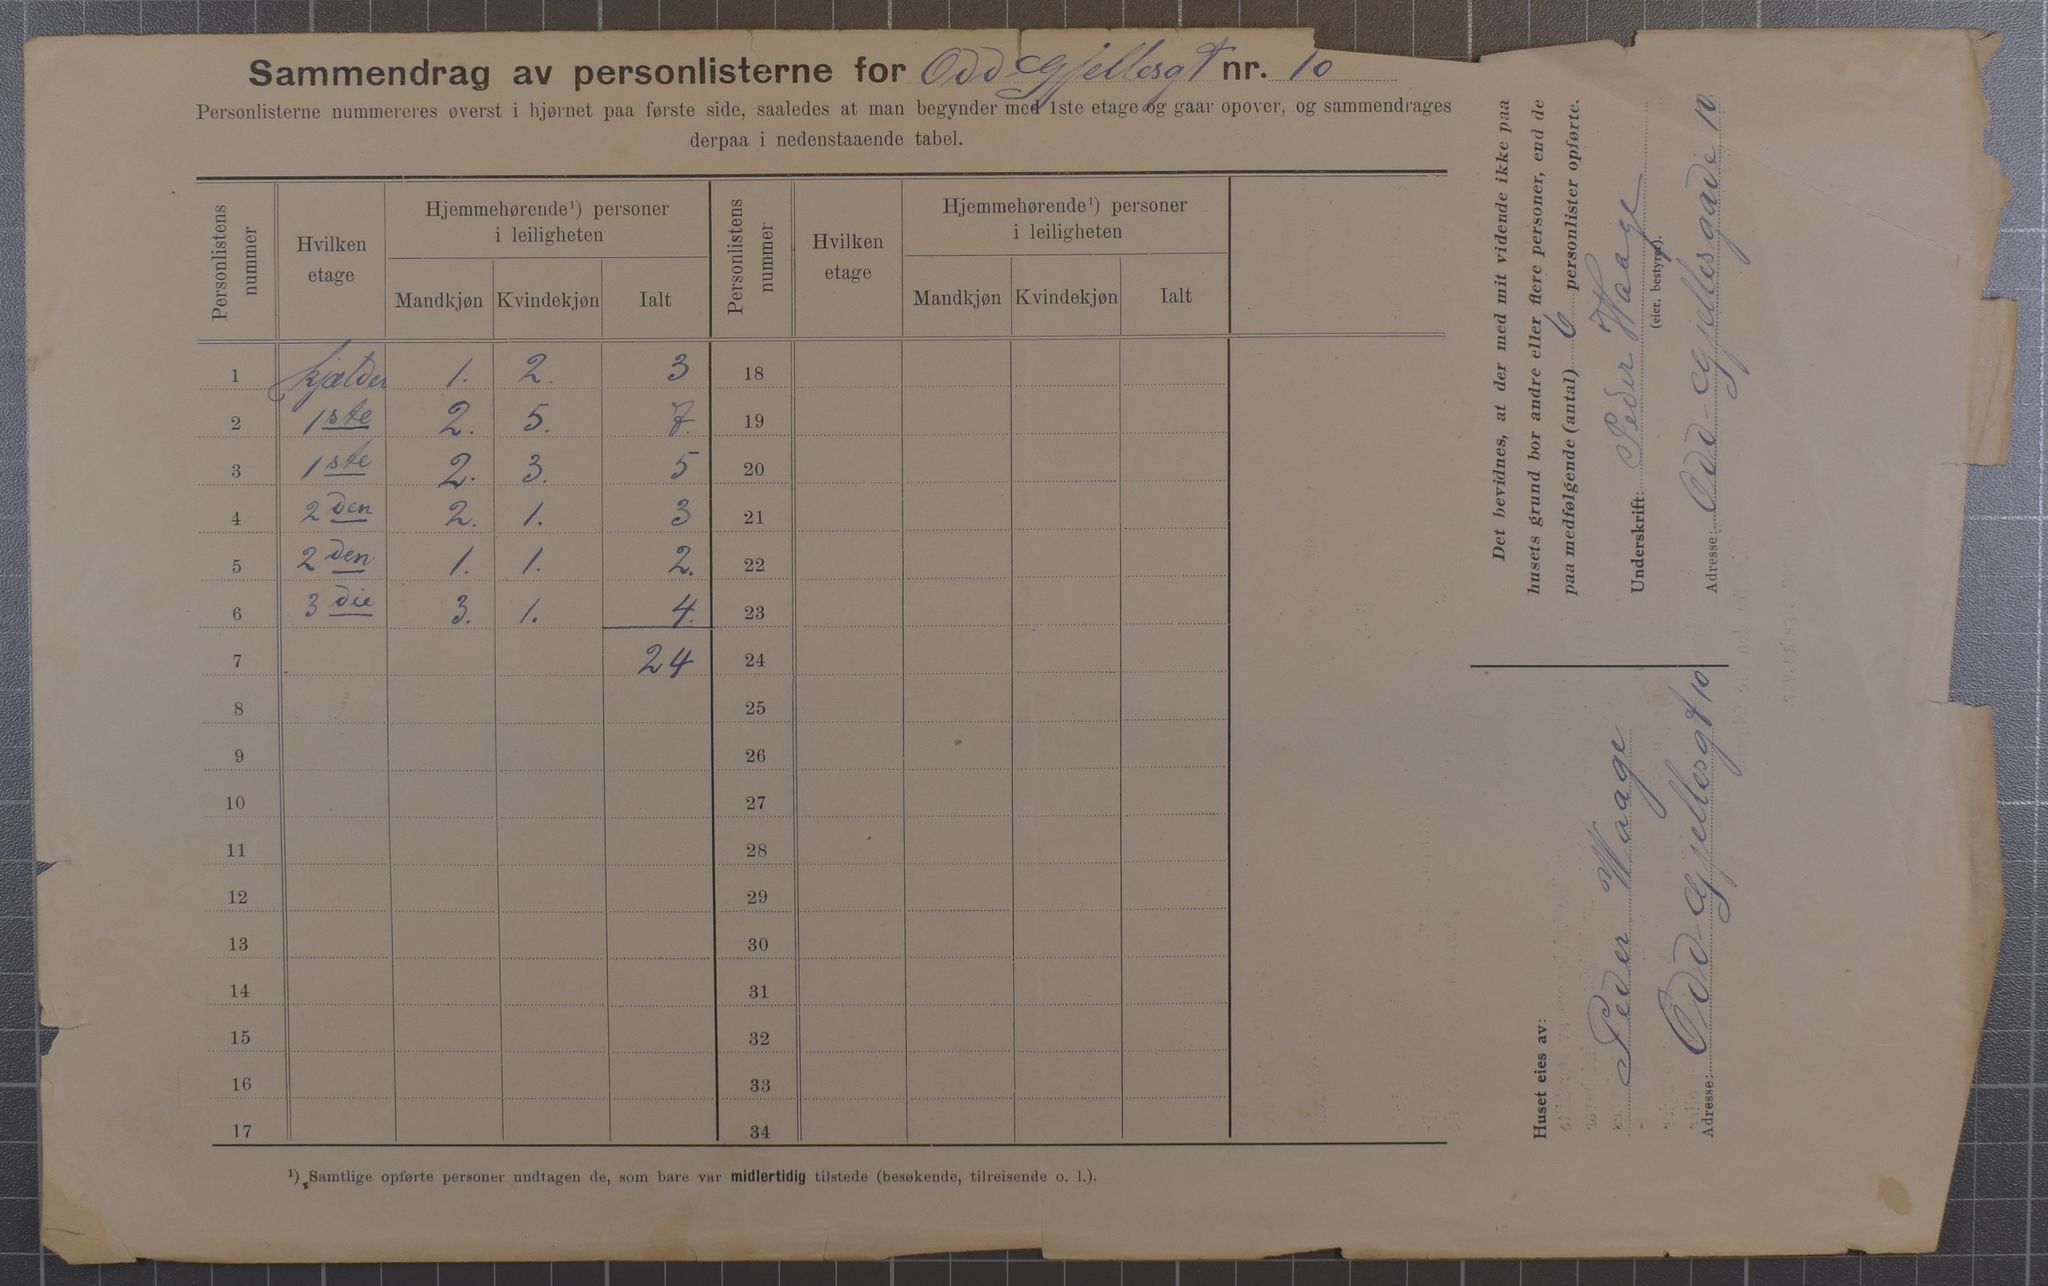 Sammendrag av personlisterne for Odd-Gjellesgt nr. 10
Personlisterne nummereres øverst i hjørnet paa første side, saaledes at man begynder med 1ste etage og gaar opover, og sammendrages
derpaa i nedenstaaende tabel.
Personlistens nummer | Hvilken etage | Hjemmehørende¹) personer i leiligheten | Personlistens nummer | Hvilken etage | Hjemmehørende¹) personer i leiligheten
Mandkjøn Kvindekjøn Ialt Mandkjøn Kvindekjøn Ialt
1 kjælder 1. 2. 3 18
2 1ste 2. 5. 7. 19
3 1ste 2. 3. 5 20
4 2den 2. 1. 3 21
5 2den 1. 1. 2. 22
6 3die 3. 1. 4. 23
7 24 24
8 25
9 26
10 27
11 28
12 29
13 30
14 31
15 32
16 33
17 34
¹) Samtlige opførte personer undtagen de, som bare var midlertidig tilstede (besøkende, tilreisende o. l.).
Det bevidnes, at der med mit vidende ikke paa
husets grund bor andre eller flere personer, end de
paa medfølgende (antal) 6 personlister opførte.
Underskrift: Peder Waage
(eier, bestyrer).
Adresse: Odd-Gjellesgade 10
Huset eies av:
Peder Waage
Adresse: Odd-Gjellesgt 10